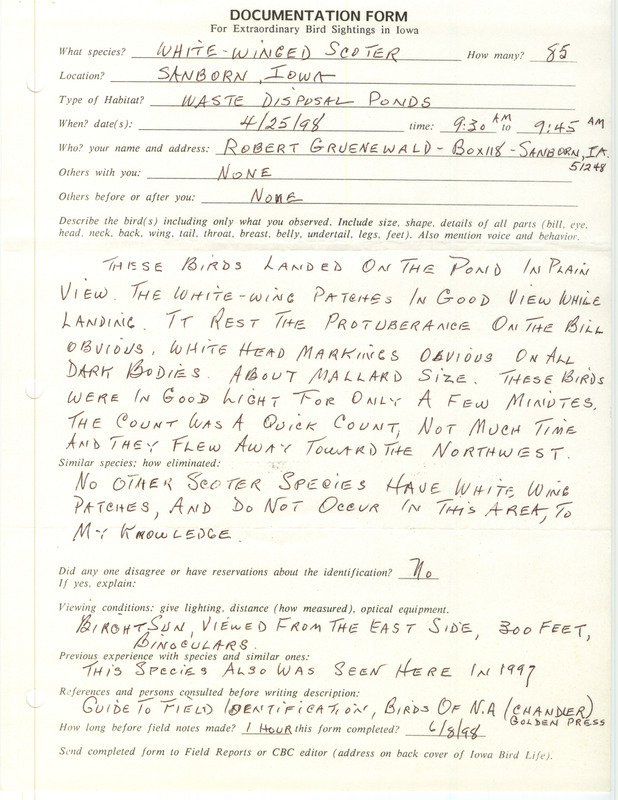 DOCUMENTATION FORM
For Extraordinary Bird Sightings in Iowa
What species? WHITE-WINGED SCOTER How many? 85
Location? SANBORN, IOWA
Type of Habitat? WASTE DISPOSAL PONDS
When? date(s): 4/25/98 time: 9:30 AM to 9:45 AM
Who? your name and address: ROBERT GRUENEWALD - BOX 118 - SANBORN, IA.
51248
Others with you: NONE
Others before or after you: NONE
Describe the bird(s) including only what you observed. Include size, shape, details of all parts (bill, eye,
head, neck, back, wing, tail, throat, breast, belly, undertail, legs, feet). Also mention voice and behavior.
THESE BIRDS LANDED ON THE POND IN PLAIN
VIEW. THE WHITE-WING PATCHES IN GOOD VIEW WHILE
LANDING. IT REST THE PROTUBERANCE ON THE BILL
OBVIOUS, WHITE HEAD MARKINGS OBVIOUS ON ALL
DARK BODIES. ABOUT MALLARD SIZE. THESE BIRDS
WERE IN GOOD LIGHT FOR ONLY A FEW MINUTES.
THE COUNT WAS A QUICK COUNT, NOT MUCH TIME
AND THEY FLEW AWAY TOWARD THE NORTHWEST.
Similar species; how eliminated:
NO OTHER SCOTER SPECIES HAVE WHITE WING
PATCHES, AND DO NOT OCCUR IN THIS AREA, TO
MY KNOWLEDGE.
Did any one disagree or have reservations about the identification? No
If yes, explain:
Viewing conditions: give lighting, distance (how measured), optical equipment.
BIRGHT SUN, VIEWED FROM THE EAST SIDE, 300 FEET,
BINOCULARS.
Previous experience with species and similar ones:
THIS SPECIES ALSO WAS SEEN HERE IN 1997
References and persons consulted before writing description:
GUIDE TO FIELD IDENTIFICATION, BIRDS OF N.A (CHANDLER)
GOLDEN PRESS
How long before field notes made? 1 HOUR this form completed? 6/8/98
Send completed form to Field Reports or CBC editor (address on back cover of Iowa Bird Life).